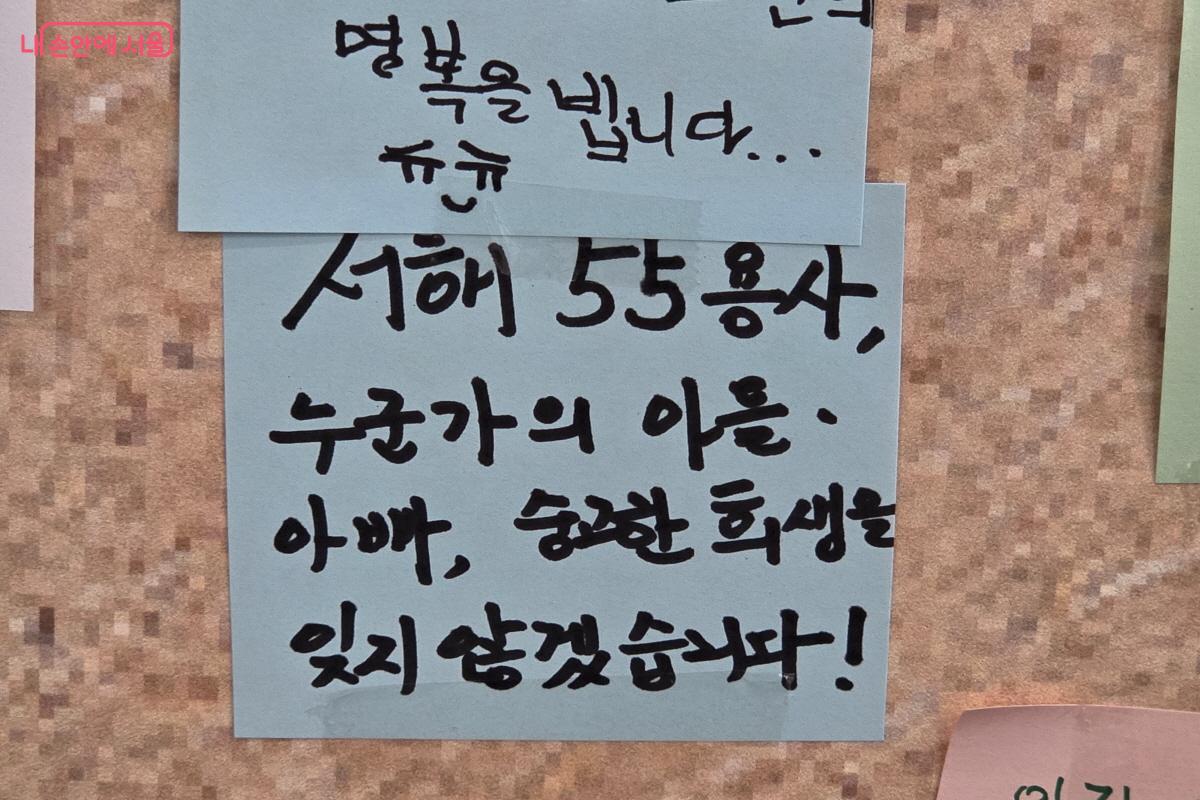 내 손안에 서울
명복을 빕니다...
ㅠㅠ
서해 55용사,
누군가의 아들·
아빠, 숭고한 희생을
잊지 않겠습니다!